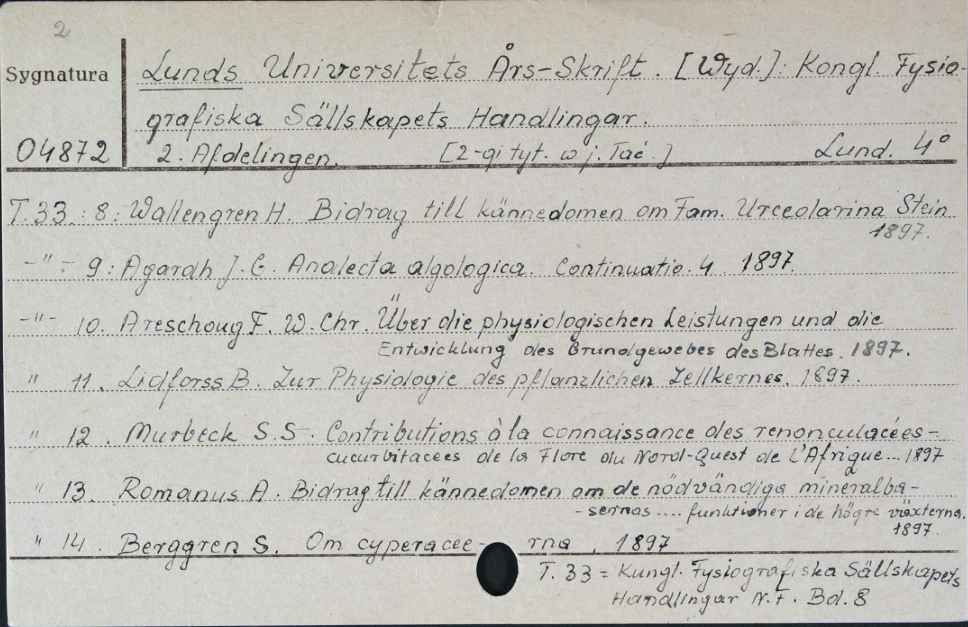 2
Sygnatura
04872
Lunds Universitets Års-Skrift. [Wyd.]: Kongl. Fysio-
grafiska Sällskapets Handlingar.
2. Afdelingen. [2-gi tyt. w j. Łać.] Lund. 4°
T. 33. : 8 : Wallengren H. Bidrag till kännedomen om Fam. Urceolarina Stein
1897.
-"- 9 : Agardh J. G. Analecta algologica. Continuatio. 4. 1897.
-"- 10. Areschoug F. W. Chr. Über die physiologischen Leistungen und die
Entwicklung des Grundgewebes des Blattes. 1897.
" 11. Lidforss B. Zur Physiologie des pflanzlichen Zellkernes. 1897.
" 12. Murbeck S. S. Contributions à la connaissance des renonculacées-
cucurbitacées de la Flore du Nord-Quest de L'Afrique... 1897
" 13. Romanus A. Bidrag till kännedomen om de nödvändiga mineralba-
- sernas .... funktioner i de högre växterna.
1897.
" 14. Berggren S. Om cyperacee- rna. 1897
T. 33 = Kungl. Fysiografiska Sällskapets
Handlingar N. F. Bd. 8